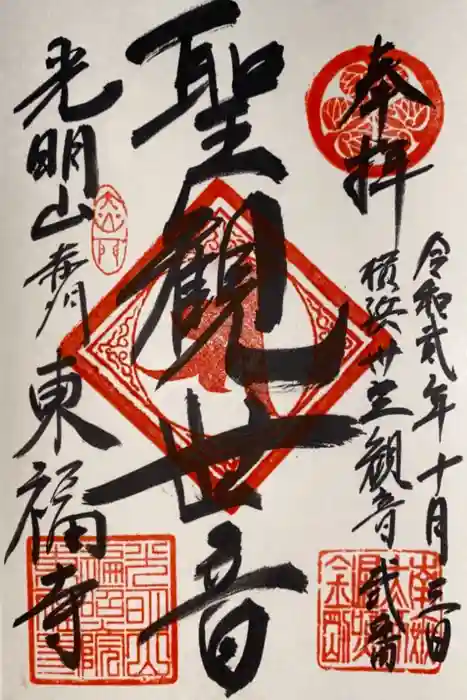 奉拝
令和弐年十月三日
横浜卅三観音弐番
聖観世音
光明山
東福寺